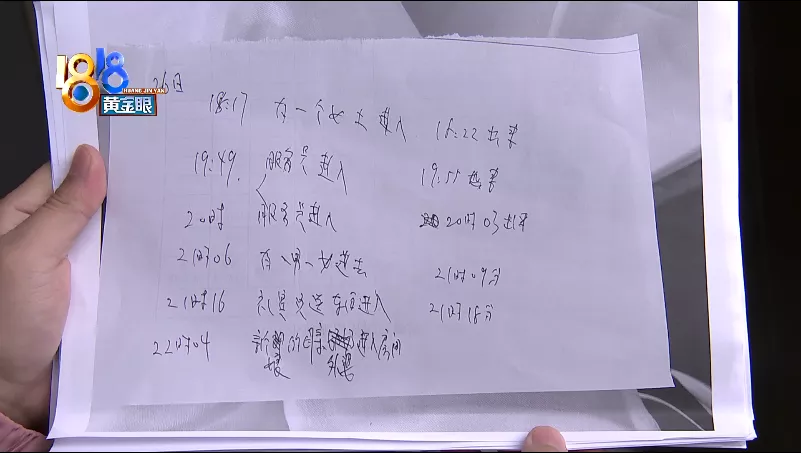 1818
HUANG JIN YAN
黄金眼
26日
18:17 有一个女士进入 18:22出来
19:49. 服务员进入 19:55出来
20时 服务员进入 20时03出来
21时06 有一男一女进去 21时09分
21时16 送东西进入 21时18分
22时04 新娘的 进入房间